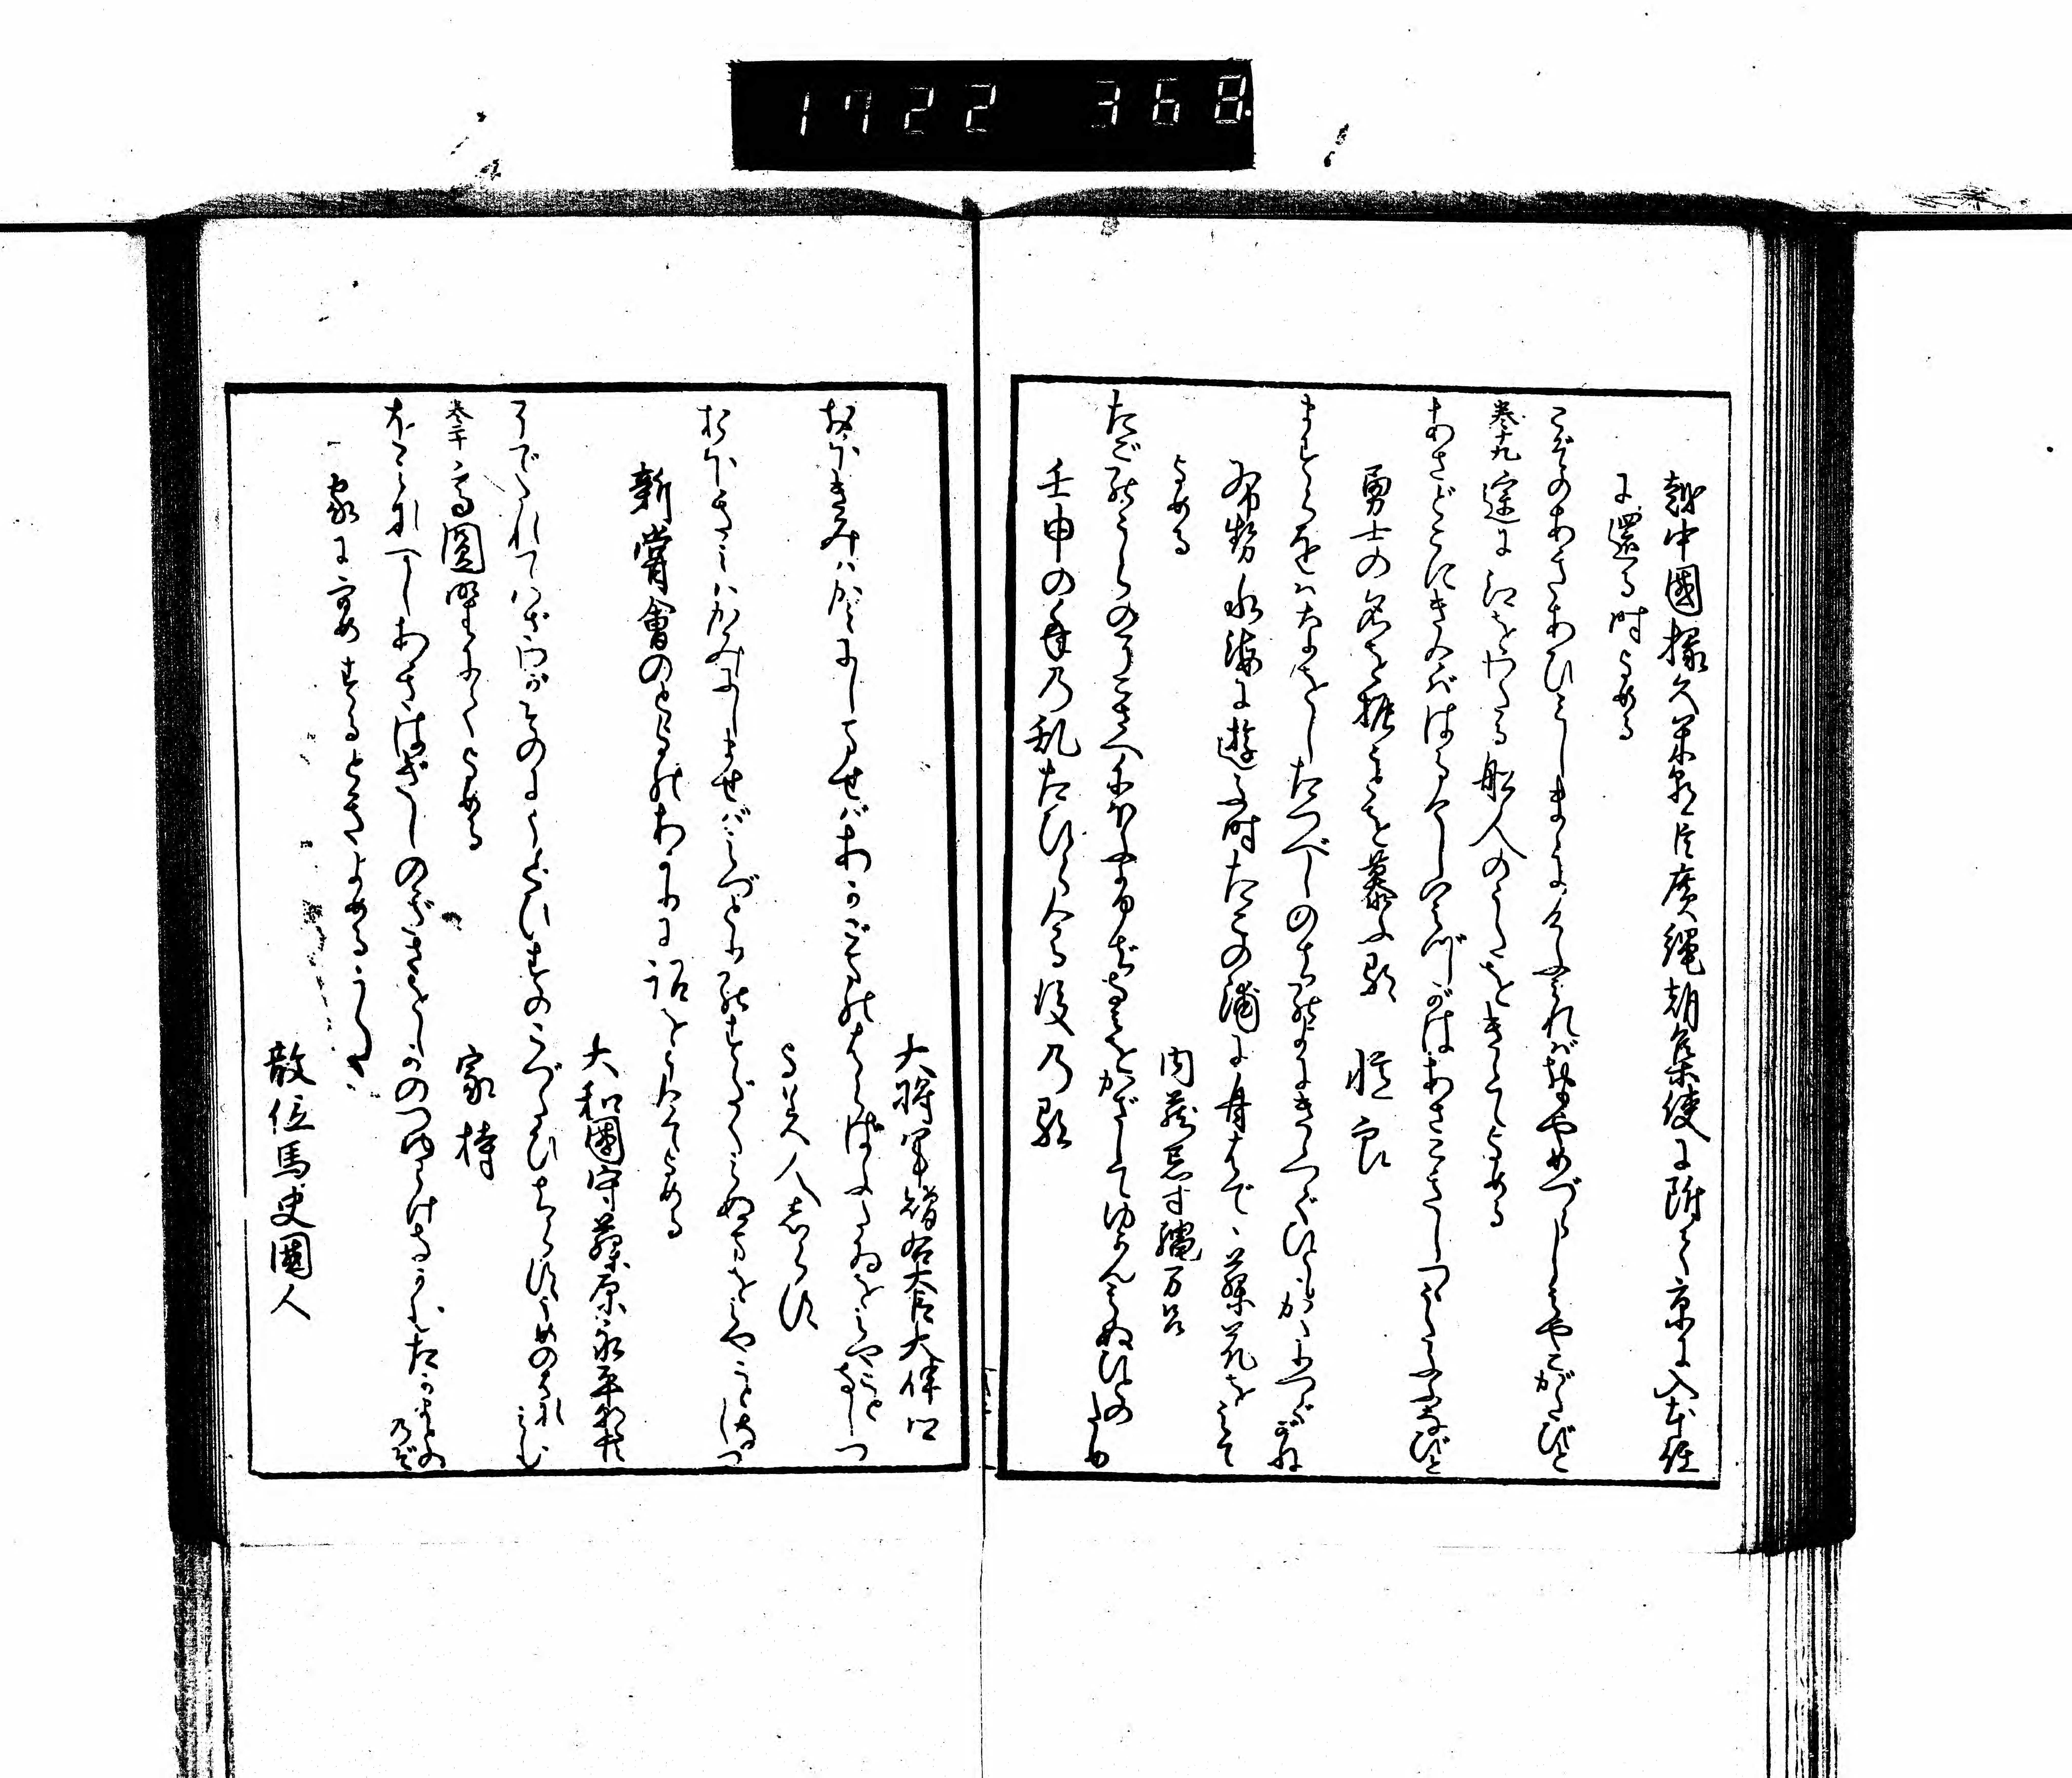 1722 368.
越中國掾久米朝臣廣縄朝集使に附て京に入本任
に還る時よめる
こぞのあきあひみしまにまけふみればおもやめづらしみやこがたびと
巻十九 遥に江をやる船人のうたをきゝてよめる
あさどこにきけばはるけしいみづがはあさこぎしつゝうたふふなびと
勇士の名を振ふを慕ふ歌 憶良
ますらをはなをしたつべしのちのよにきゝつぐひともかたりつぐがね
布勢水海に遊ふ時たこの浦に舟はてゝ藤花をみて
よめる
内蔵忌寸縄万呂
たごのうらのそこさへにほふふぢなみをかざしてゆかんみぬひとのため
壬申の年乃乱たひらける後乃歌
大将軍贈右大臣大伴卿
おほきみはかみにしませばあかごまのはらばふたゐをみやことなしつ
よみ人志らす
おほきみはかみにしませばみづとりのすだくみぬまをみやことなしつ
新嘗會のとよのあかりに詔をうけてよめる
大和國守藤原永平朝臣
そでたれていざわがそのにうぐひすのこづたひちらすうめのはなみに
巻二十 高圓野にてよめる
家持
をみなへしあきはぎしのぎさをしかのつゆわけなかむたかまとのの乃ぞ
家に宴するときよめるうた
散位馬史國人